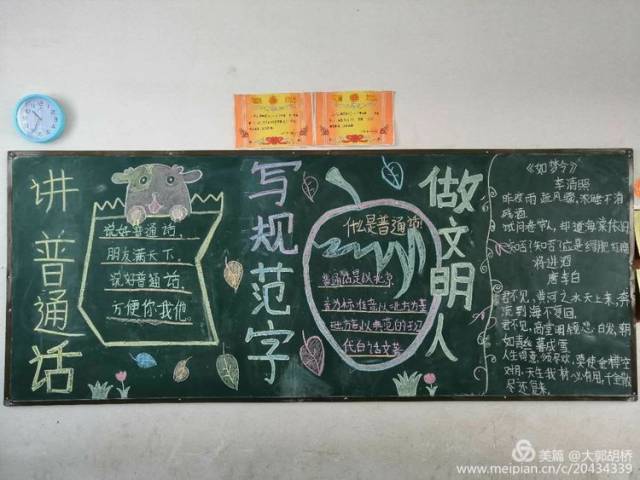 讲普通话
说好普通话，
朋友满天下。
说好普通话，
方便你我他。
写规范字
什么是普通话？
普通话是以北京
音为标准音以北方方
代白话文著
做文明人
《如梦令》
李清照
昨夜雨疏风骤，浓睡不消
残酒。
试问卷帘人，却道海棠依旧
知否？知否？应是绿肥红瘦
将进酒
唐李白
君不见，黄河之水天上来，奔
流到海不复回。
君不见，高堂明镜悲白发，朝
如青丝暮成雪
人生得意须尽欢，莫使金樽空
对月。天生我材必有用，千金散
尽还复来。
美篇 @大郭胡桥
www.meipian.cn/c/20434339